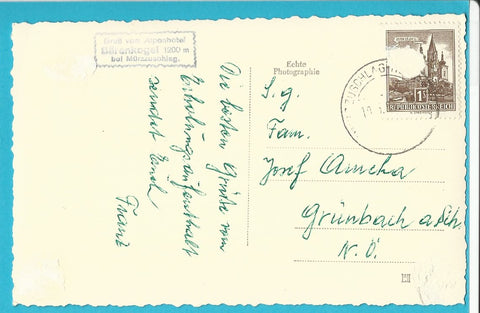 Gruß vom Alpenhotel
Bärenkogel 1200 m
bei Mürzzuschlag.
Die besten Grüße vom
Erholungsaufenthalt
sendet Euch
Franz
Echte
Photographie
ZUSCHLAG
1S
REPUBLIK ÖSTERREICH
S. g.
Fam.
Josef
Grünbach a. Sch.
N. Ö.